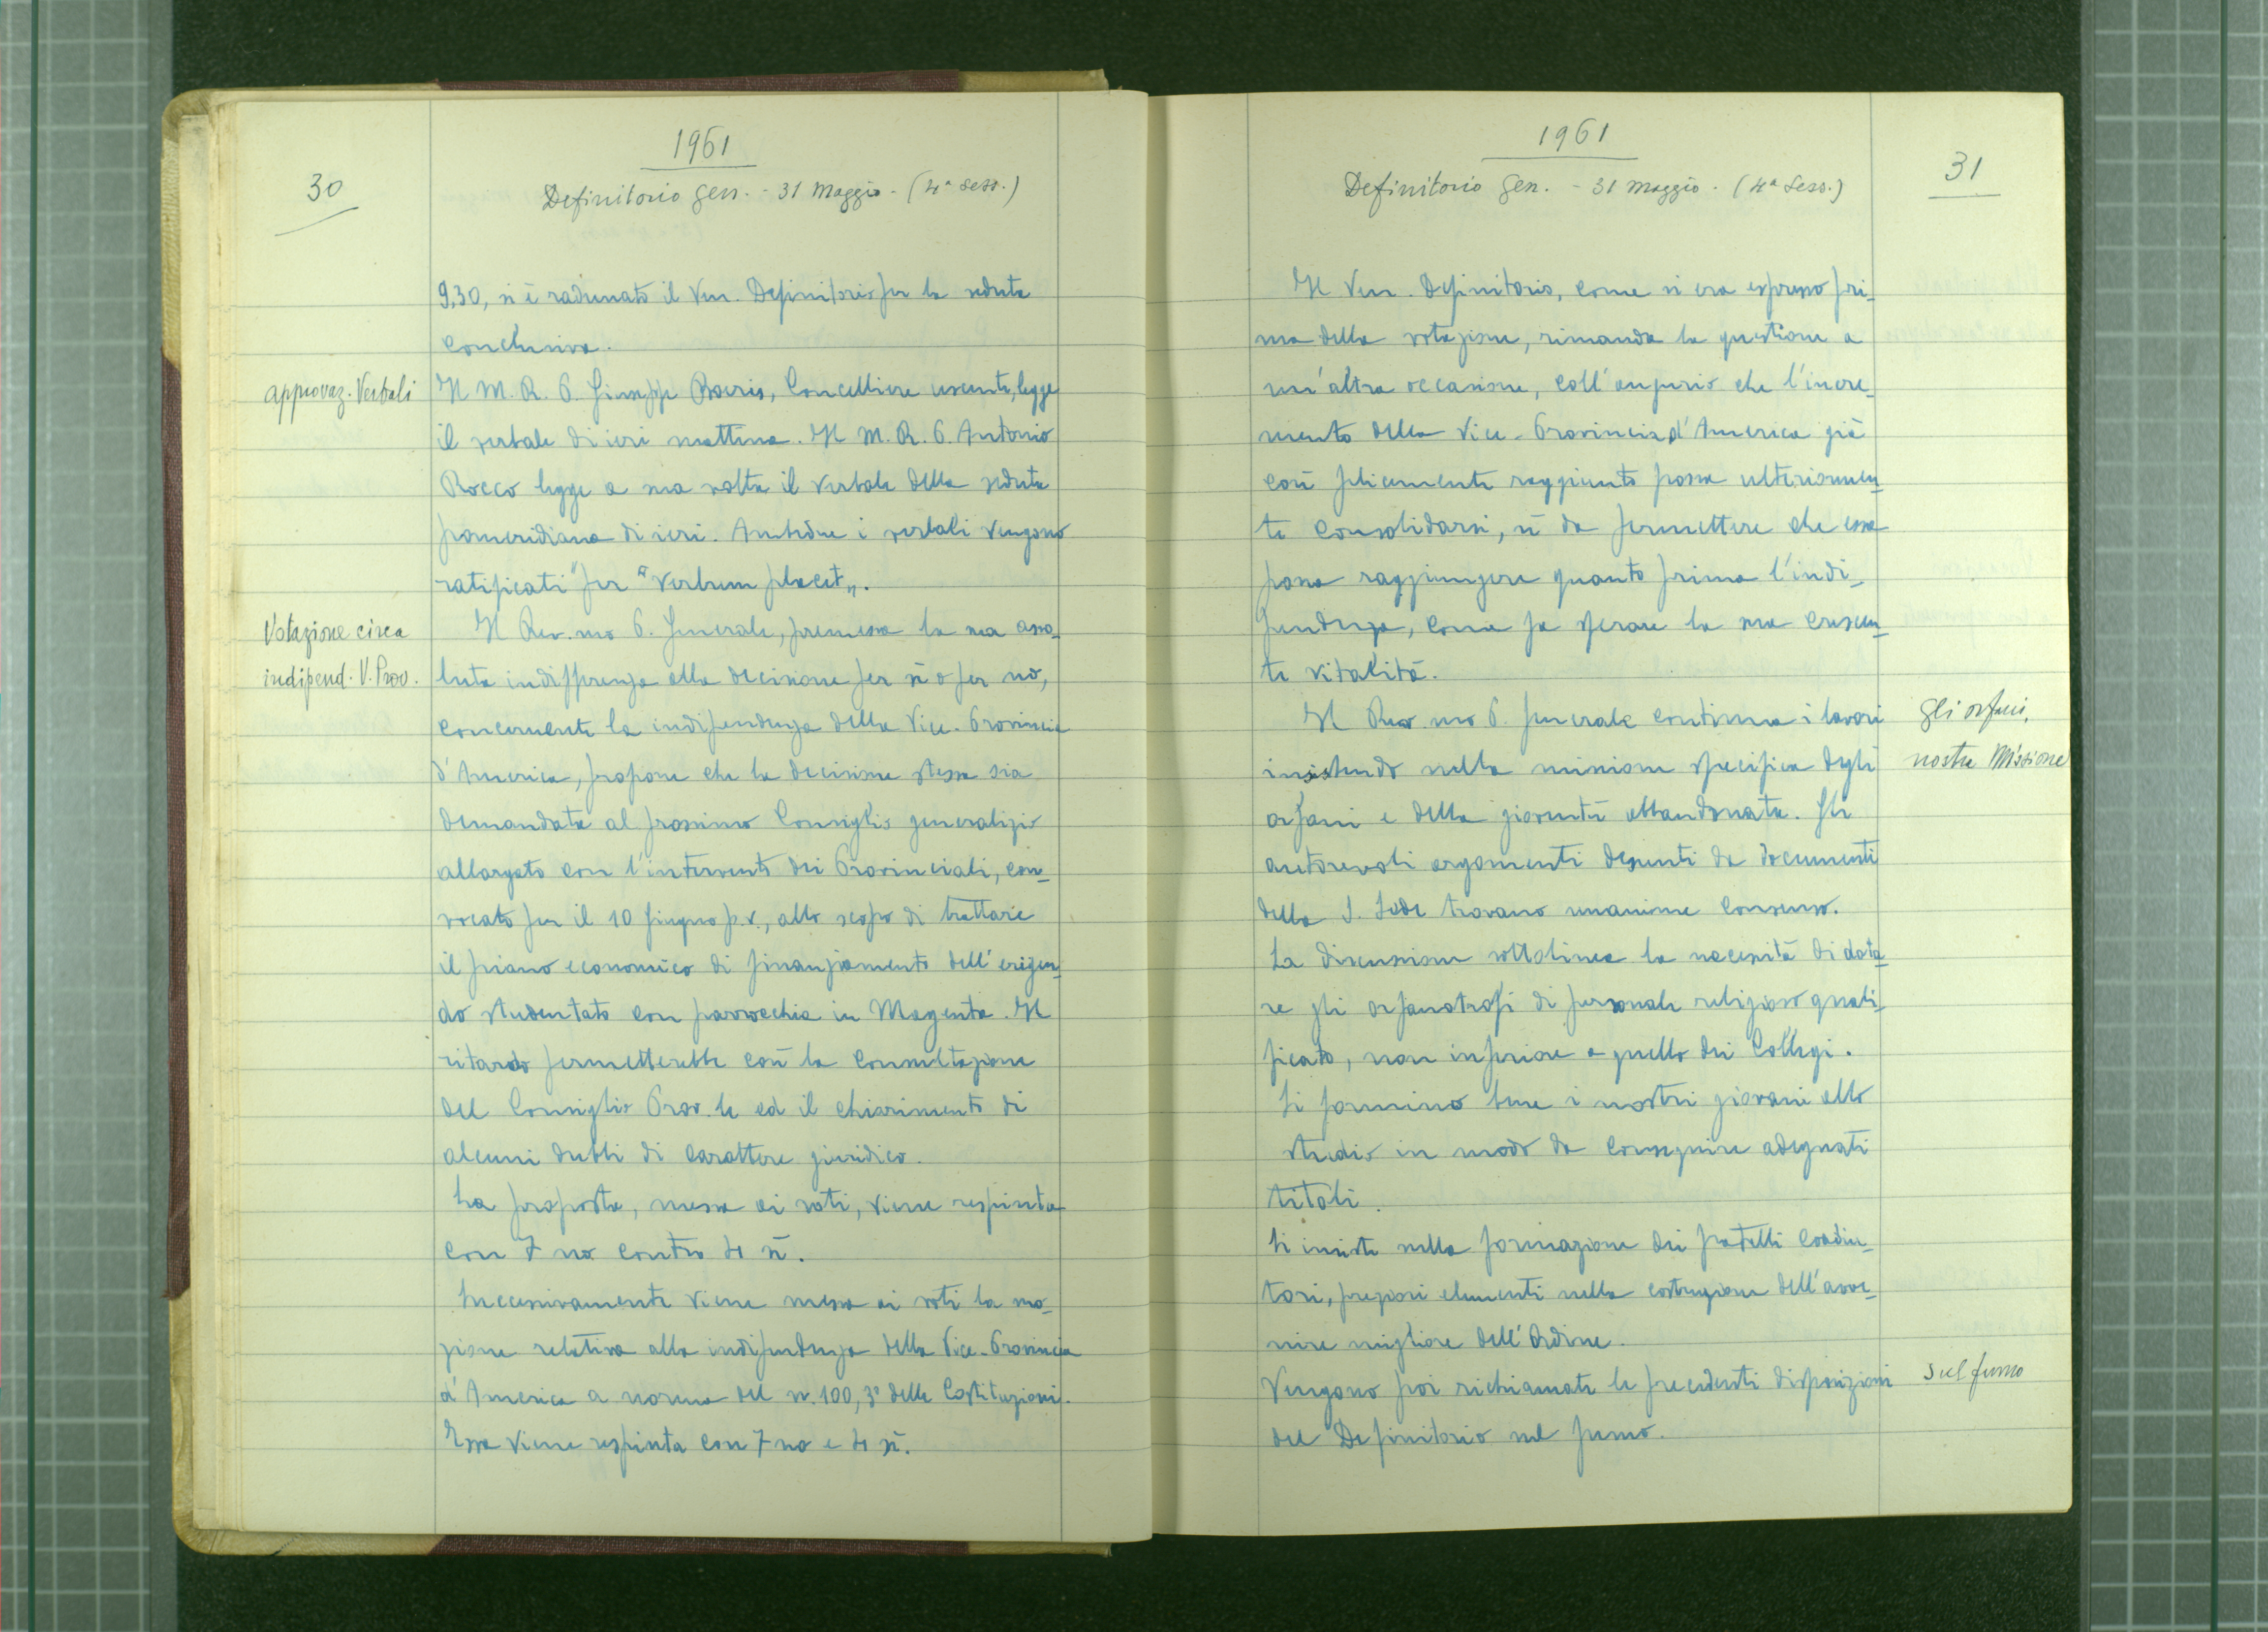 1961
30
Definitorio Gen. - 31 Maggio - (4ª Sess.)
9,30, si è radunato il Ven. Definitorio per la seduta
conclusiva.
approvaz. Verbali
Il M. R. P. Giuseppe Boeris, Cancelliere uscente, legge
il verbale di ieri mattina. Il M. R. P. Antonio
Rocco legge a sua volta il verbale della seduta
pomeridiana di ieri. Ambedue i verbali vengono
ratificati "per "Verbum placet".
Votazione circa
indipend. V. Prov.
Il Rev.mo P. Generale, premessa la sua asso-
luta indifferenza alla decisione per sì o per no,
concernente la indipendenza della Vice-Provincia
d'America, propone che la decisione stessa sia
demandata al prossimo Consiglio generalizio
allargato con l'intervento dei Provinciali, con-
vocato per il 10 giugno p.v., allo scopo di trattare
il piano economico di finanziamento dell'erigen-
do studentato con parrocchia in Magenta. Il
ritardo permetterebbe così la consultazione
del Consiglio Prov.le ed il chiarimento di
alcuni dubbi di carattere giuridico.
La proposta, messa ai voti, viene respinta
con 7 no contro 4 sì.
Successivamente viene messa ai voti la mo-
zione relativa alla indipendenza della Vice-Provincia
d'America a norma del n. 100, 3° delle Costituzioni.
Essa viene respinta con 7 no e 4 sì.
1961
31
Definitorio Gen. - 31 Maggio - (4ª Sess.)
Il Ven. Definitorio, come si era espresso pri-
ma della votazione, rimanda la questione a
un'altra occasione, coll'augurio che l'incre-
mento della Vice-Provincia d'America già
così felicemente raggiunto possa ulteriormen-
te consolidarsi, sì da permettere che essa
possa raggiungere quanto prima l'indi-
pendenza, come fa sperare la sua crescen-
te vitalità.
gli orfani,
nostra Missione
Il Rev.mo P. Generale continua i lavori
insistendo nella missione specifica degli
orfani e della gioventù abbandonata. Gli
autorevoli argomenti desunti da documenti
della S. Sede trovano unanime consenso.
La discussione sottolinea la necessità di dota-
re gli orfanotrofi di personale religioso quali-
ficato, non inferiore a quello dei Collegi.
Si formino bene i nostri giovani allo
studio in modo da conseguire adeguati
titoli.
Si insiste nella formazione dei fratelli coadiu-
tori, preziosi elementi nella costruzione dell'avve-
nire migliore dell'Ordine.
sul fumo
Vengono poi richiamate le precedenti disposizioni
del Definitorio sul fumo.